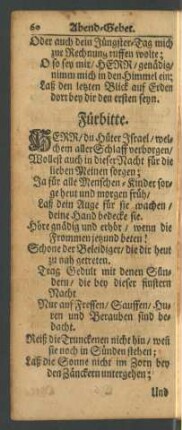 60 Abend-Gebet.
Oder auch dein Jüngster-Tag mich
zur Rechnung ruffen wolte;
O so sey mir/ HERR/ genädig/
nimm mich in den Himmel ein;
Laß den letzten Blick auf Erden
dort bey dir den ersten seyn.
Fürbitte.
HERR/ du Hüter Israel/ wel-
chem aller Schlaff verborgen/
Wollest auch in dieser Nacht für die
lieben Meinen sorgen;
Ja für alle Menschen-Kinder sor-
ge heut und morgen früh/
Laß dein Auge für sie wachen/
deine Hand bedecke sie.
Hör genädig und erhör/ wenn die
Frommen jetzund beten!
Schone der Beleidiger/ die dir heut
zu nah getreten.
Trag Gedult mit denen Sün-
dern/ die bey dieser finstern
Nacht
Nur auf Fressen/ Sauffen/ Hu-
ren und Berauben sind be-
dacht.
Reiß die Trunckenen nicht hin/ weñ
sie noch in Sünden stehen;
Laß die Sonne nicht im Zorn bey
den Zänckern untergehen;
Und